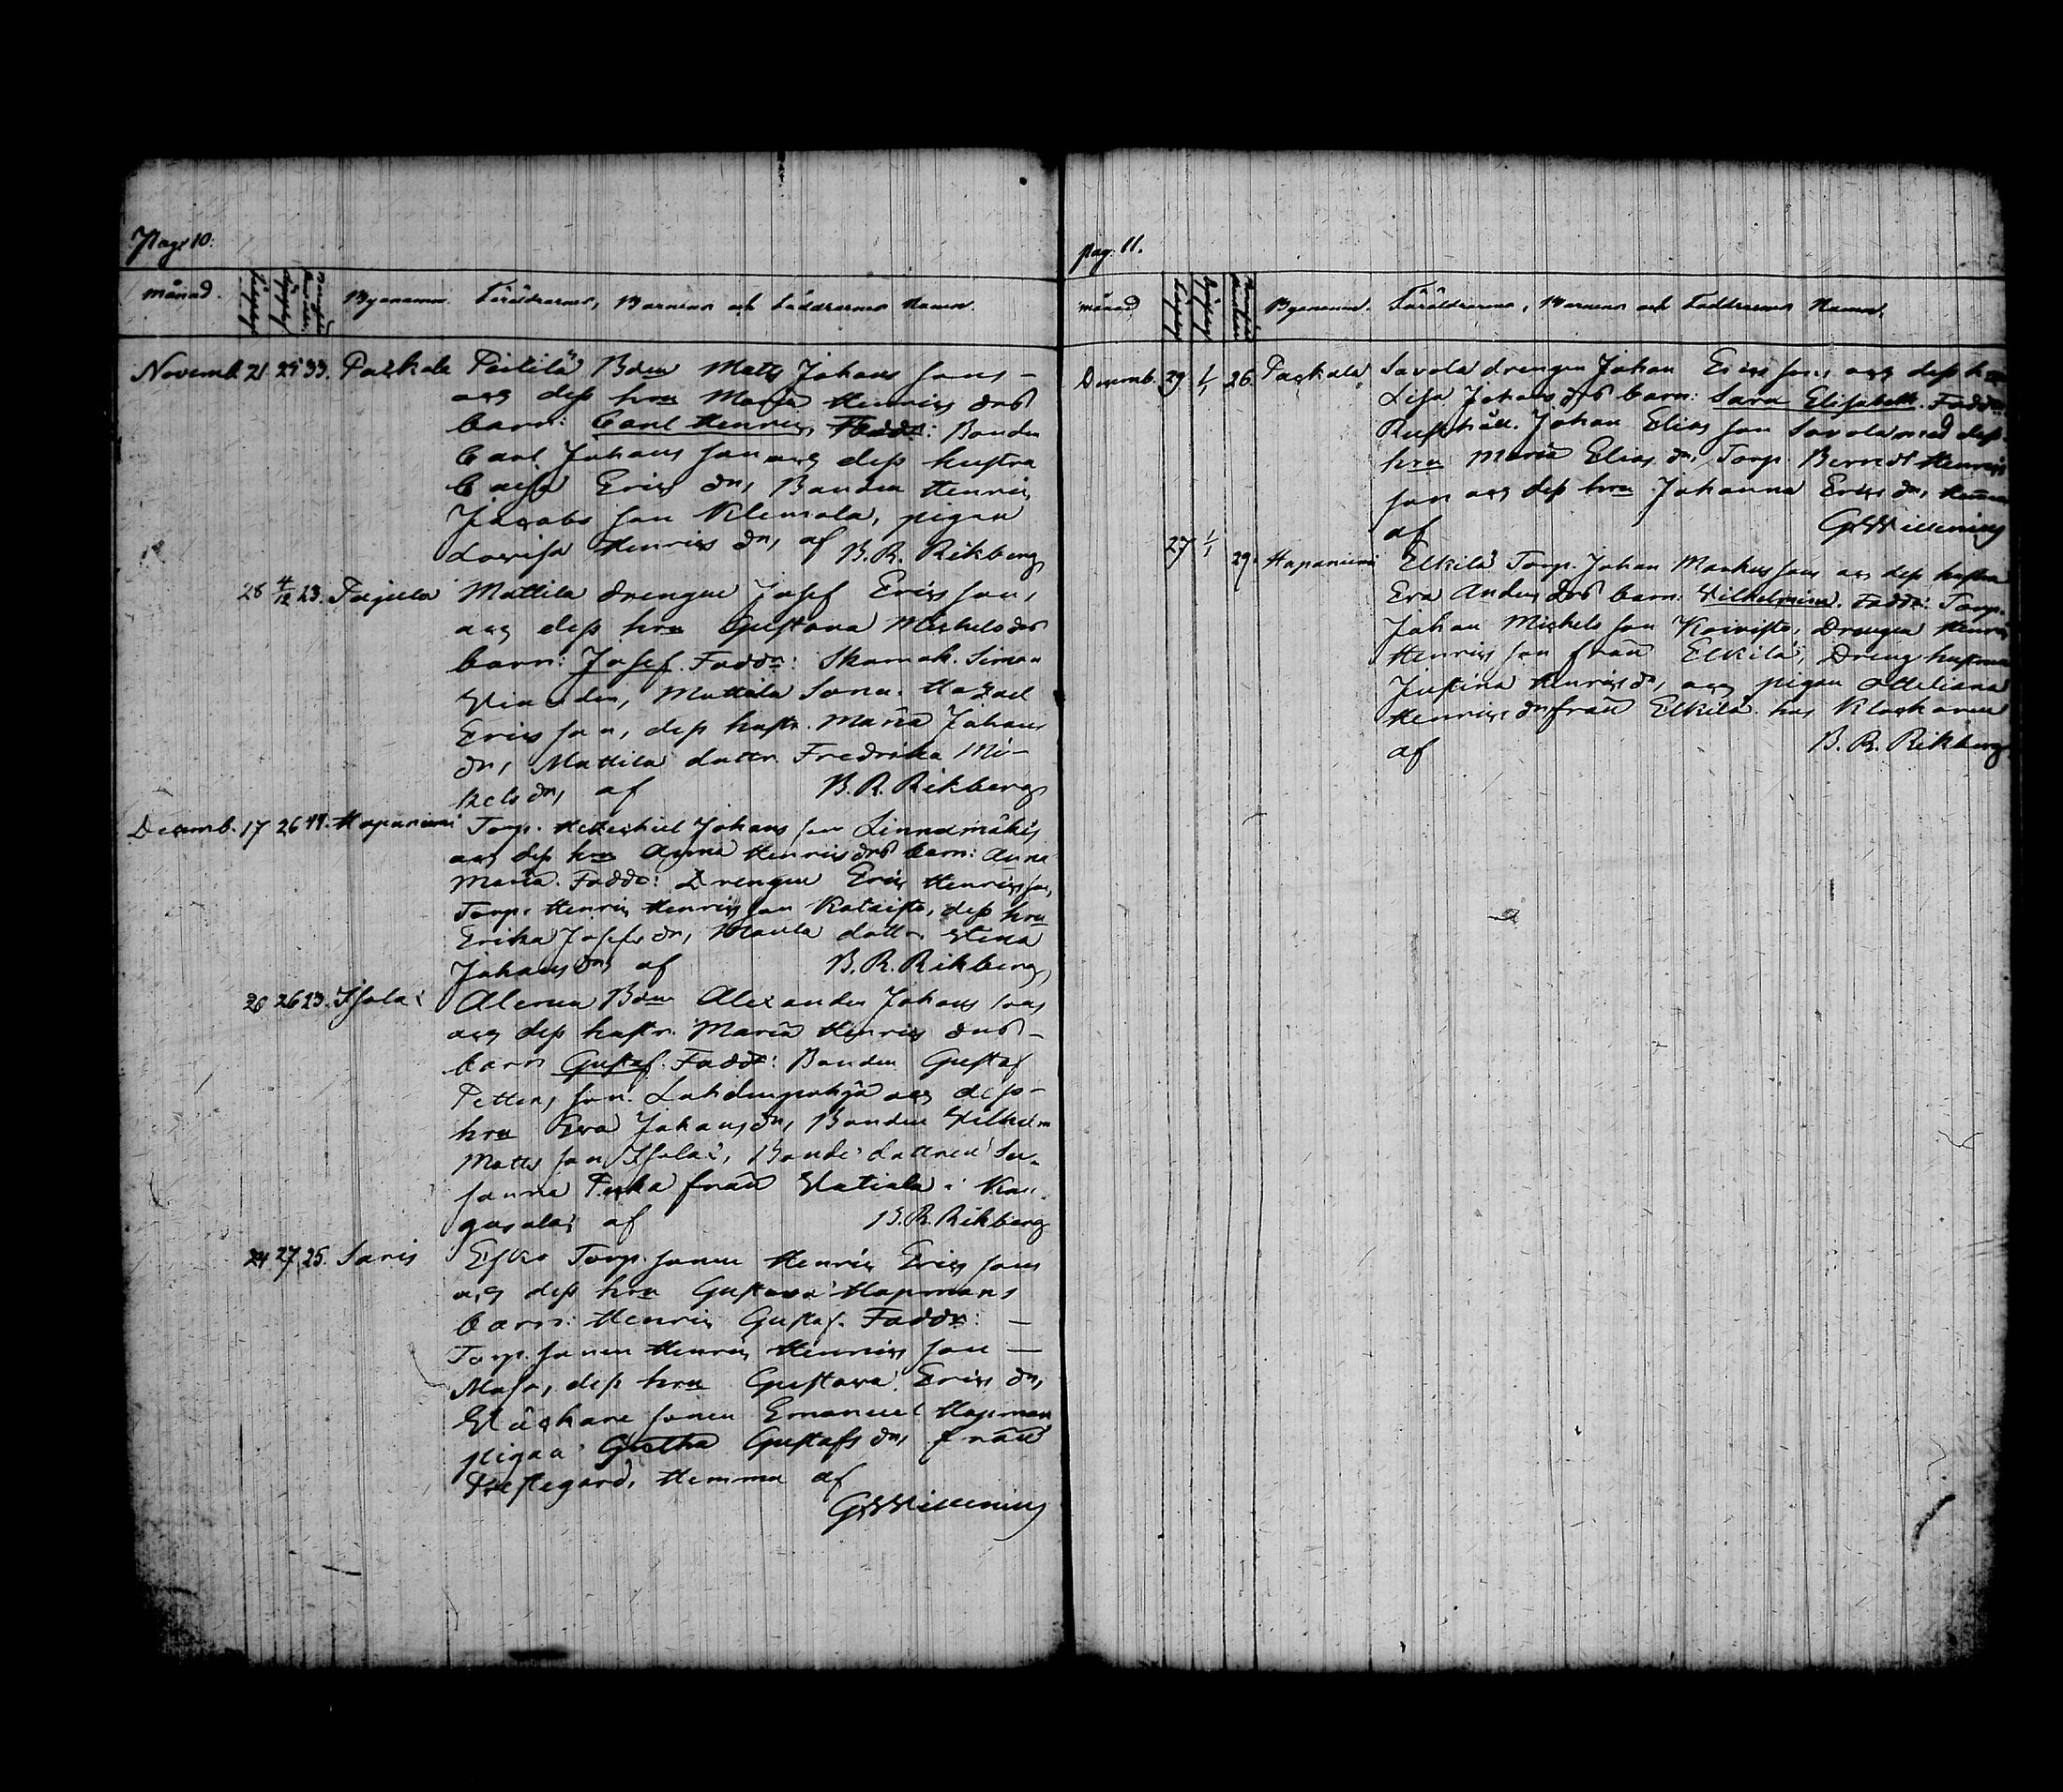 Pag. 10.
månad. Födelsedag Döpelsedag Byanamn. Föräldrarnes, Barnens och Faddrarnes Namn.
Novemb. 21 25 33. Paskala Peitilä Bden Matts Johans sons
och dess hru Maria Henrics drs
barn: Carl Henric, Faddr: Bonden
Carl Johans son och dess hustru
Caisa Erics dr, Bonden Henric
Jacobs son Klemola, pigan
Lovisa Henrics dr, af B. R. Rikberg
28 4/12 23. Pajula Mattila drengen Josef Ericssons,
och dess hru Gustava Michels drs
barn: Josef. Faddr: Skomak. Simon
Mattila Sonen
Erics son, dess hustr. Maria Johans
dr, Mattila dottr. Fredrika Mi-
kels dr, af B. R. Rikberg
Decemb. 17 26 44. Hapaniemi Torp. Johans son Linnamäkis
och dess hru Anna Henrics drs barn: Anna
Maria. Faddr: Drengen Eric Henricsson,
Torp. Henric Henrics son Kataisto, dess hru
Erika Josefs dr, dottr. Stina
Johans dr af B. R. Rikberg
20 26 23. Isola Alenen Bdens Alexander Johans sons
och dess hustr. Maria Henrics drs
barn Gustaf. Faddr: Bonden Gustaf
Petters son. Lahdenpohja och dess
hru Eva Johans dr, Bonden Vilhelm
Matts son Isola, Bonde dottren Su-
sanna från Vatiala i Kan-
gasala, af B. R. Rikberg
24 27 25. Saris Esko Torp. sonen Henric Erics sons
och dess hru Gustava Hapmans
barn: Henric Gustaf. Faddr:
Torp. sonen Henric Henrics son
Maso, dess hru Gustava Erics dr,
sonen Emanuel Hapman
pigan Gretha Gustafs dr, från
Prestegård, Hemma af
G. Willenius
pag. 11.
månad Födelsedag Döpelsedag Byanamn. Föräldrarnes, Barnens och Faddrarnes Namn.
Decemb. 29 1/1 26. Paskala Savola drengen Johan Erics sons och dess hru
Lisa Johans drs barn: Sara Elisabeth. Faddr:
Rusthåll. Johan Elias son Savola med dess
hru Maria Elias dr, Torp. Berndt Henrics
son och dess hru Johanna Erics dr, Hemma
af G. Willenius
27 1/1 29. Hapaniemi Elkilä Torp. Johan Markus sons och dess hustru
Eva Anders drs barn: Vilhelmina. Faddr: Torp.
Johan Michels son Koivisto, Drengen Henric
Henrics son från Elkilä, Dreng hustrun
Justina Henrics dr, och pigan
Henrics dr från Elkilä. hos Klockaren
af B. R. Rikberg